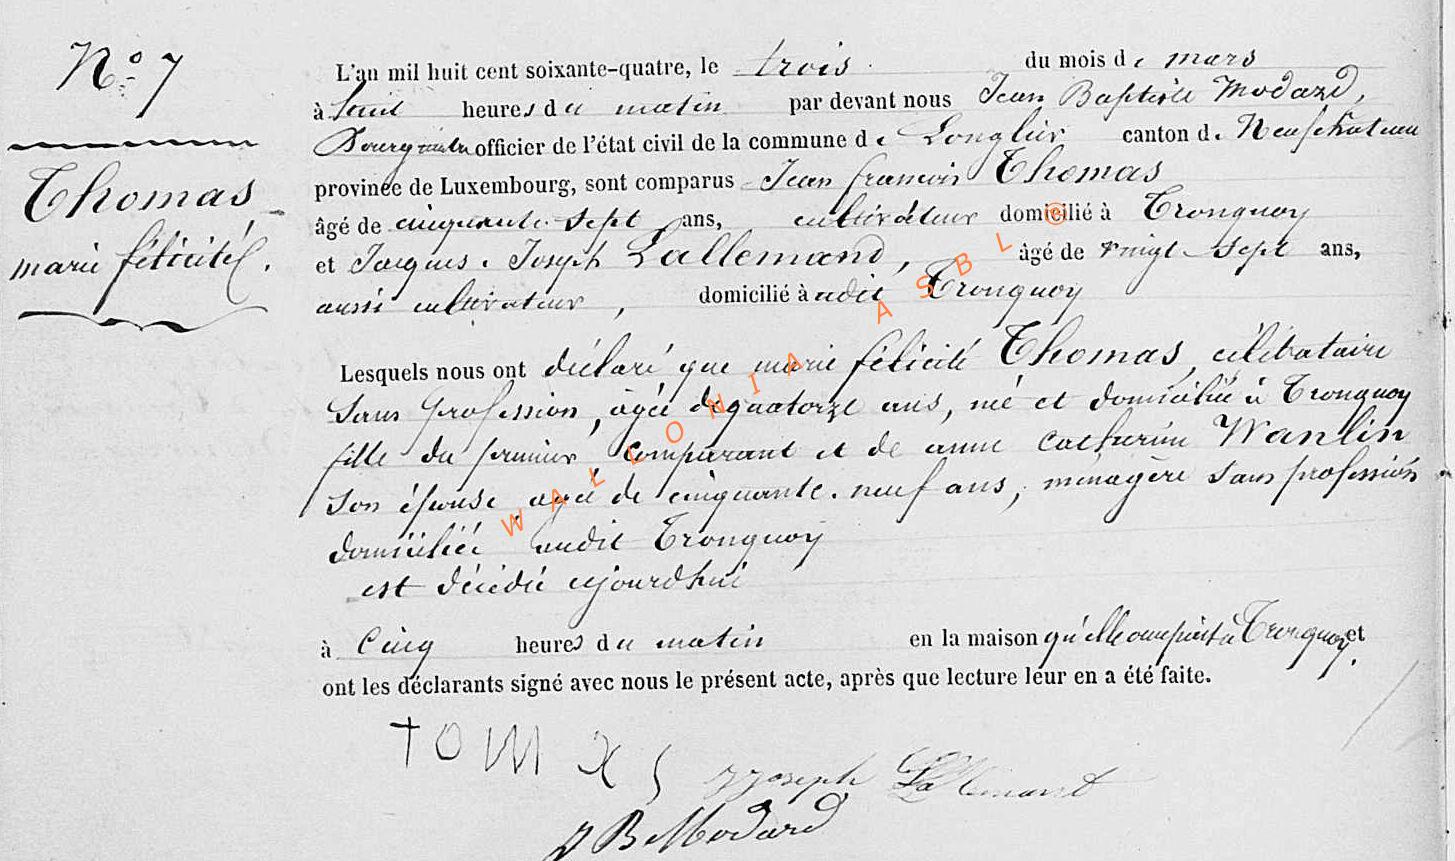 N° 7
Thomas
marie félicité.
L'an mil huit cent soixante-quatre, le trois du mois de mars
à huit heures du matin par devant nous Jean Baptiste Modard,
Bourgmestre officier de l'état civil de la commune de Longlier canton de Neufchateau
province de Luxembourg, sont comparus Jean francois Thomas
âgé de cinquante sept ans, cultivateur domicilié à Tronquoy
et Jacques Joseph Lallemand, âgé de vingt sept ans,
aussi cultivateur, domicilié à udit Tronquoy
Lesquels nous ont déclaré que marie félicité Thomas, célibataire
sans profession, agée de quatorze ans, né et domiciliée à Tronquoy
fille du premier comparant et de anne catherine Wanlin
son épouse, agée de cinquante neuf ans, ménagère sans profession
domiciliée audit Tronquoy
est décédée ajourdhui
à Cinq heures du matin en la maison qu'elle occupait à Tronquoy. et
ont les déclarants signé avec nous le présent acte, après que lecture leur en a été faite.
TOMXS JJoseph Lallemant
JB Modard
WALLONIA ASBL ©